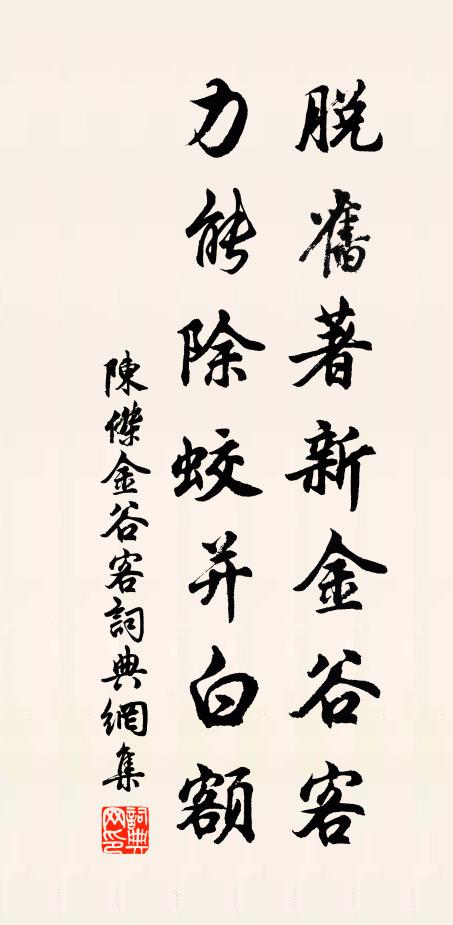 脫舊著新金谷客
力能除蛟并白額
陳傑金谷客詞典網集
詞典网印